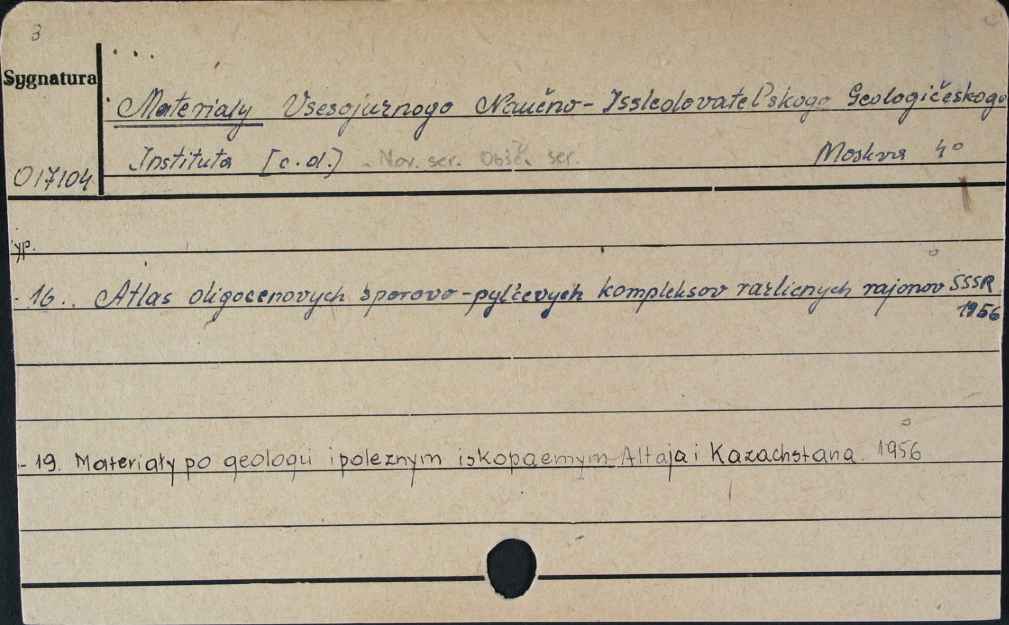 3
Sygnatura
Materialy Vsesojuznogo Naučno-Issledovatel'skogo Geologičeskogo
Instituta [c.d.] Nov. ser. Obšč. ser. Moskva 4°
017104
yp.
- 16. Atlas oligocenovych sporovo-pyl'cevych kompleksov različnych rajonov SSSR
1956
- 19. Materiały po geologii i poleznym iskopaemym Altaja i Kazachstana. 1956